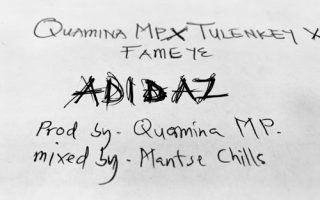 QUAMINA MP X TULENKEY X
FAMEYE
ADIDAZ
Prod by - Quamina MP.
mixed by - Mantse Chills